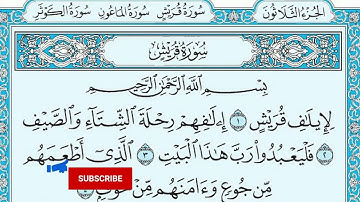 الجزء الثلاثون سورة قريش سورة الماعون سورة الكوثر
سورة قريش
بِسْمِ اللَّهِ الرَّحْمَٰنِ الرَّحِيمِ
لِإِيلَٰفِ قُرَيْشٍ ١ إِۦلَٰفِهِمْ رِحْلَةَ الشِّتَآءِ وَالصَّيْفِ
٢ فَلْيَعْبُدُوا۟ رَبَّ هَٰذَا الْبَيْتِ ٣ الَّذِىٓ أَطْعَمَهُم
مِّن جُوعٍ وَءَامَنَهُم مِّنْ خَوْفٍۭ
SUBSCRIBE